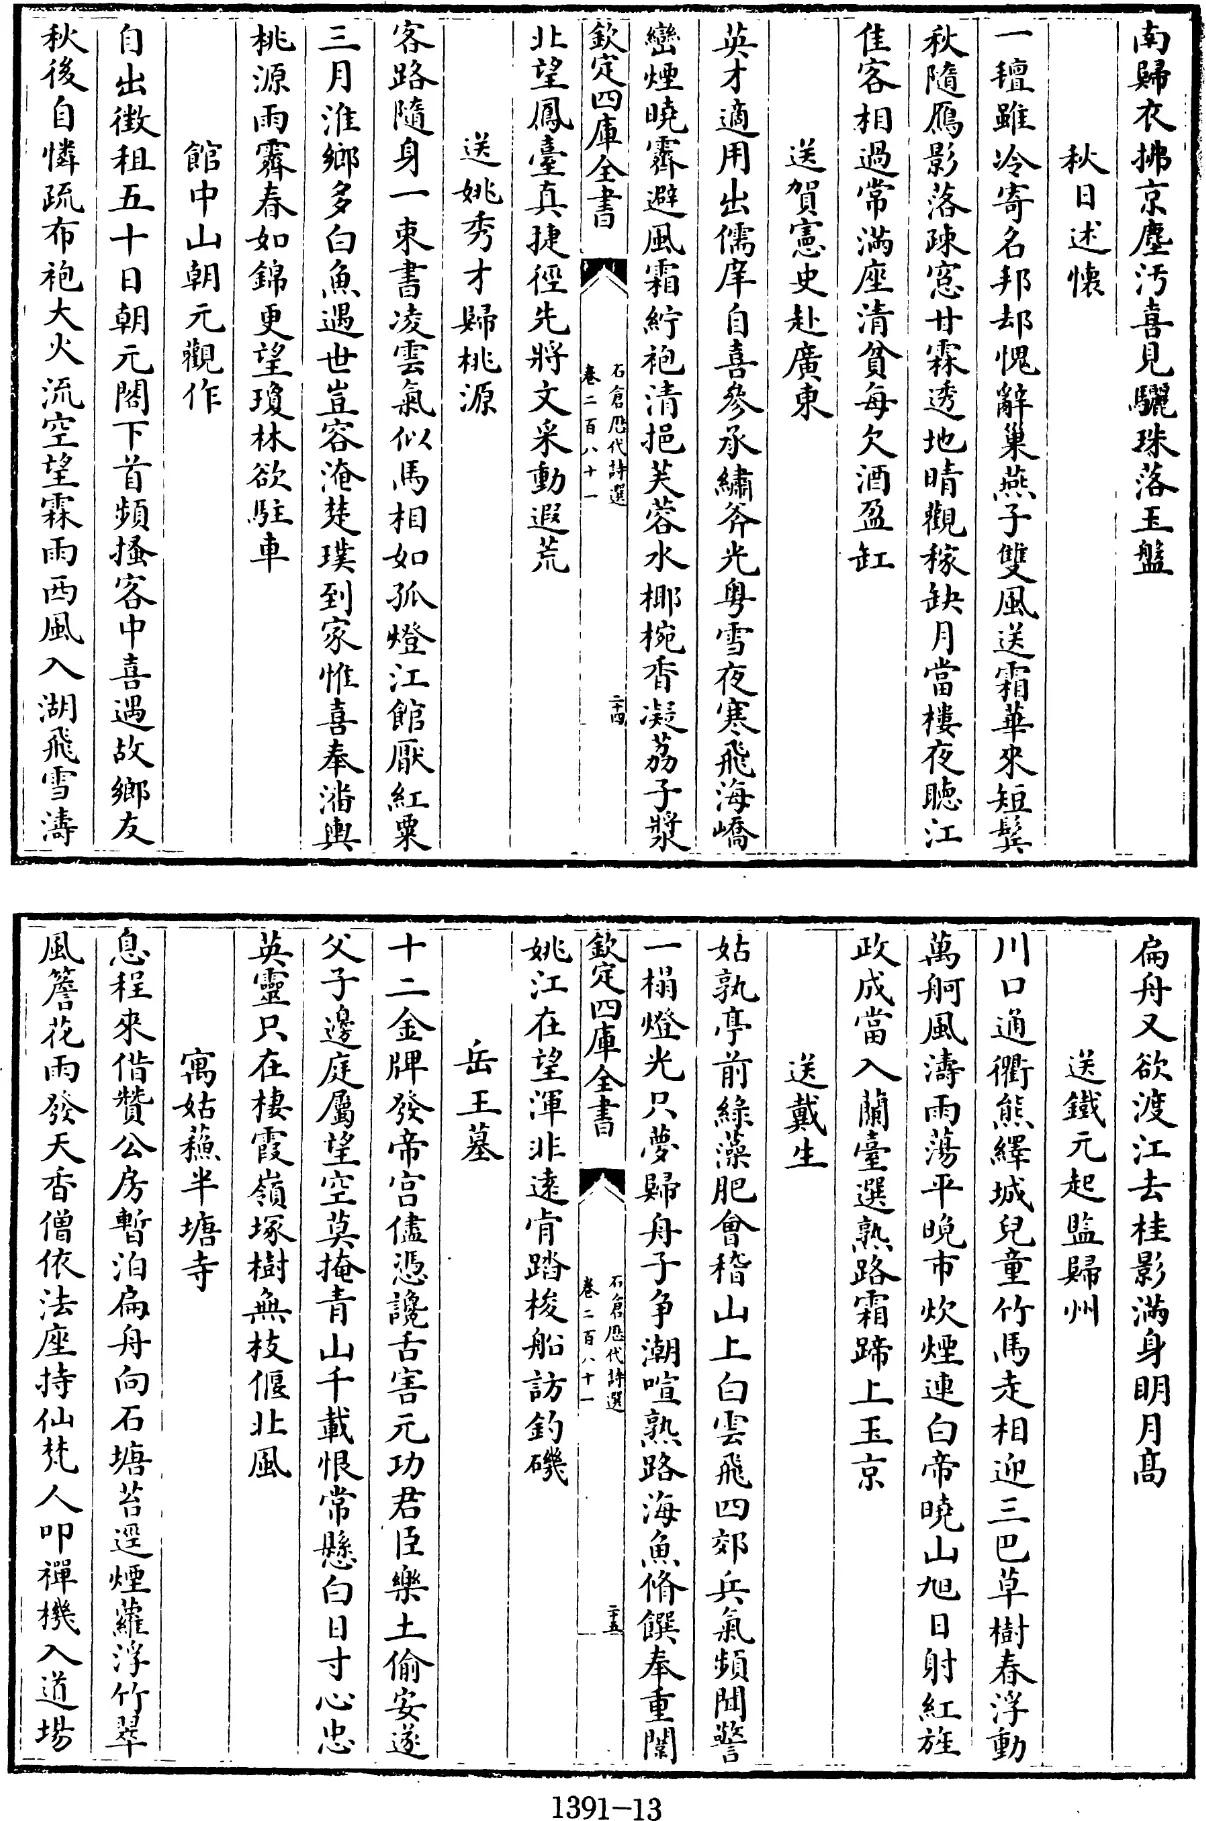 南歸衣拂京塵汚喜見驪珠落玉盤
秋日述懷
一氊雖冷寄名邦却愧辭巢燕子雙風送霜華來短鬓
秋隨鴈影落疎窓甘霖透地晴觀稼缺月當樓夜聽江
佳客相過常滿座清貧每欠酒盈缸
送賀憲史赴廣東
英才適用出儒庠自喜參承繡斧光粤雪夜寒飛海嶠
巒煙曉霽避風霜紵袍清挹芙蓉水椰椀香凝荔子漿
欽定四庫全書
石倉歷代詩選
卷二百八十一
二十四
北望鳳臺真捷徑先將文采動遐荒
送姚秀才歸桃源
客路隨身一束書凌雲氣似馬相如孤燈江館厭紅粟
三月淮鄉多白魚遇世豈容淹楚璞到家惟喜奉潘輿
桃源雨霽春如錦更望瓊林欲駐車
館中山朝元觀作
自出徴租五十日朝元閣下首頻搔客中喜遇故鄉友
秋後自憐疏布袍大火流空望霖雨西風入湖飛雪濤
扁舟又欲渡江去桂影滿身明月髙
送鐵元起監歸州
川口通衢熊繹城兒童竹馬走相迎三巴草樹春浮動
萬舸風濤雨蕩平晚市炊煙連白帝曉山旭日射紅旌
政成當入蘭臺選熟路霜蹄上玉京
送戴生
姑孰亭前綠藻肥會稽山上白雲飛四郊兵氣頻聞警
一榻燈光只夢歸舟子争潮喧熟路海魚脩饌奉重闈
欽定四庫全書
石倉歷代詩選
卷二百八十一
二十五
姚江在望渾非逺肯踏梭船訪釣磯
岳王墓
十二金牌發帝宫儘憑讒舌害元功君臣樂土偷安遂
父子邊庭屬望空莫掩青山千載恨常懸白日寸心忠
英靈只在棲霞嶺塚樹無枝偃北風
寓姑蘓半塘寺
息程來借贊公房暫泊扁舟向石塘苔逕煙蘿浮竹翠
風簷花雨發天香僧依法座持仙梵人叩禪機入道場
1391-13